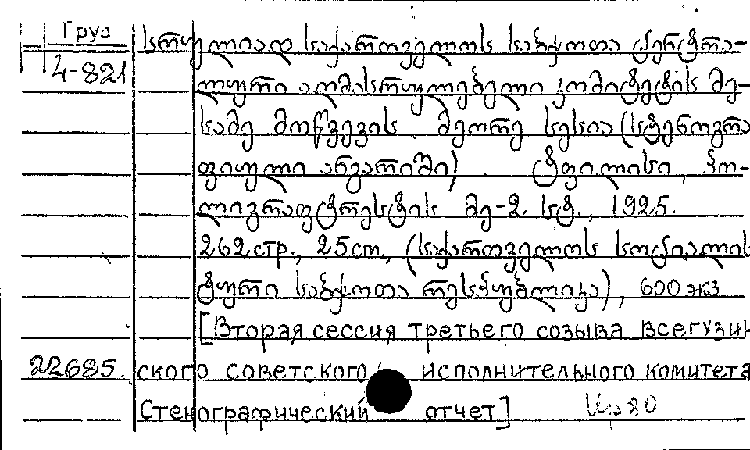 Груз
სრულიად საქართველოს საბჭოთა ცენტრა-
4-821
ლური აღმასრულებელი კომიტეტის მე-
სამე მოწვევის მეორე სესია (სტენოგრა
ფიული ანგარიში) ტფილისი, პო-
ლიგრაფტრესტის მე-2. სტ., 1925.
262 стр., 25 cm, (საქართველოს სოციალის
ტური საბჭოთა რესპუბლიკა), 600 экз
[Вторая сессия третьего созыва всегузин
22685. ского советского исполнительного комитета
Стенографический отчет]